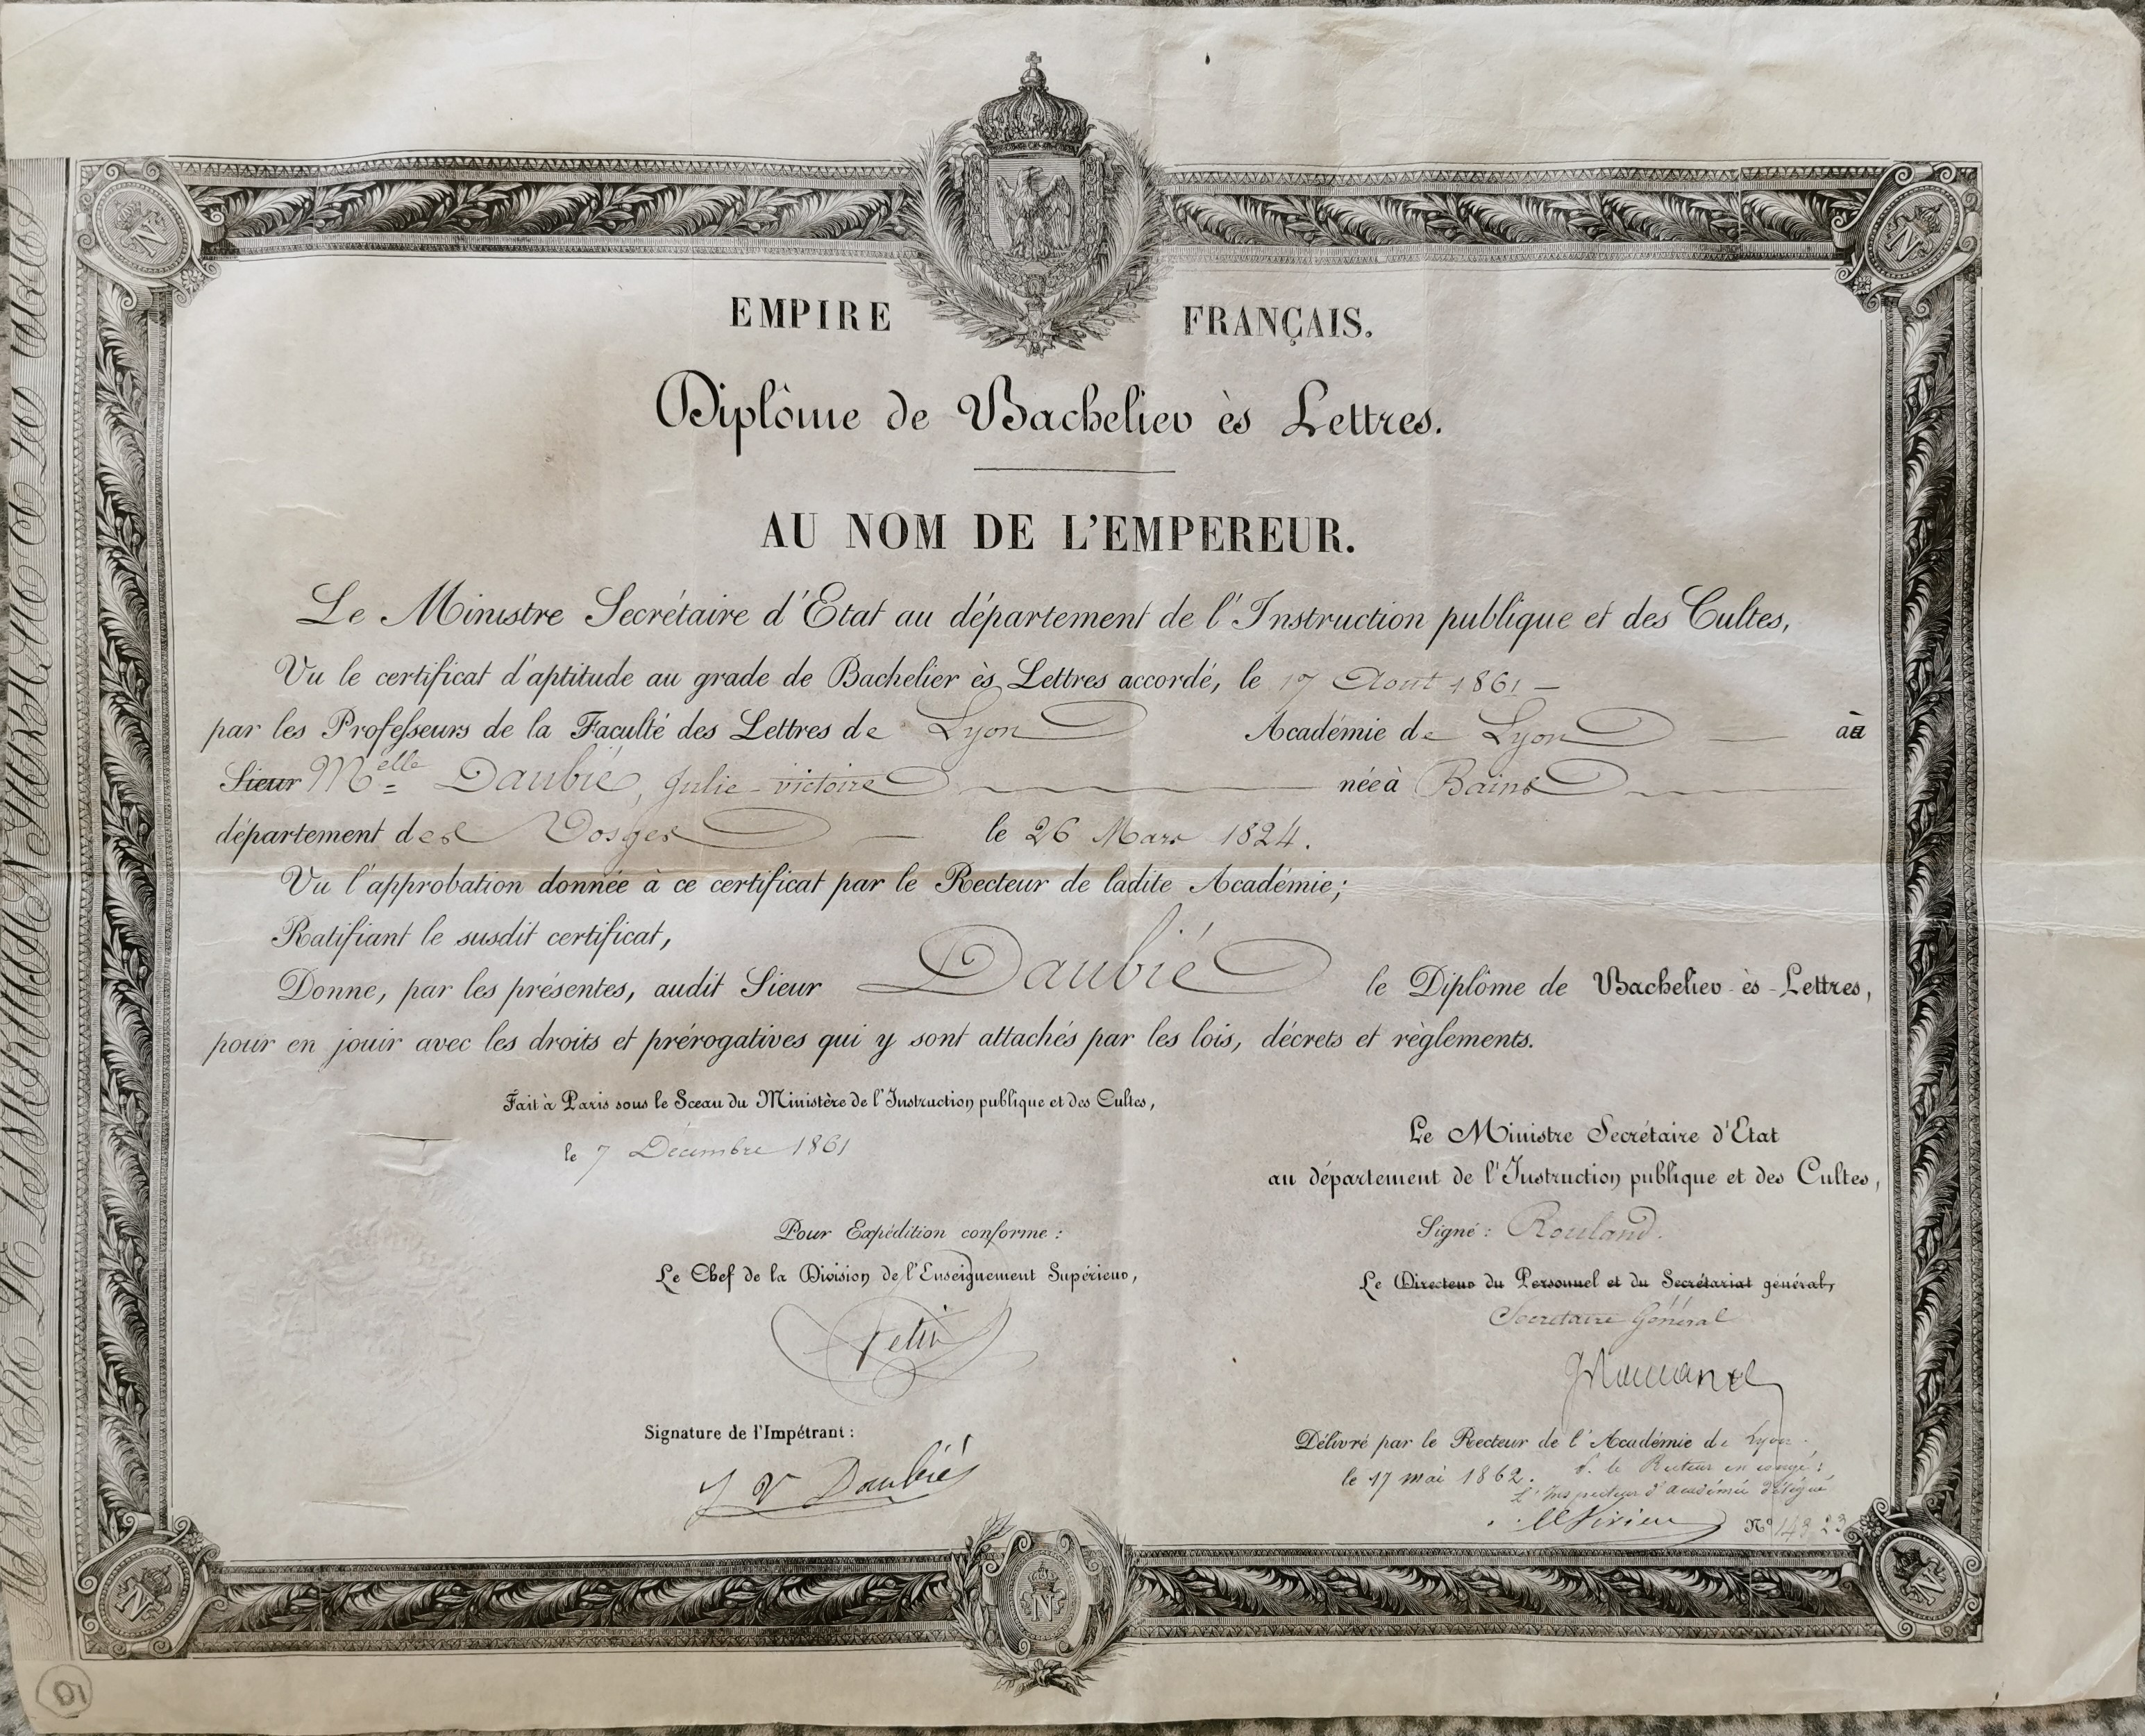 EMPIRE FRANÇAIS.
Diplôme de Bachelier ès Lettres.
AU NOM DE L'EMPEREUR.
Le Ministre Secrétaire d'Etat au département de l'Instruction publique et des Cultes,
Vu le certificat d'aptitude au grade de Bachelier ès Lettres accordé, le 17 Aout 1861 —
par les Professeurs de la Faculté des Lettres de Lyon Académie de Lyon — à
Sieur Melle Daubié, Julie-victoire née à Bains
département des Vosges — le 26 Mars 1824.
Vu l'approbation donnée à ce certificat par le Recteur de ladite Académie;
Ratifiant le susdit certificat,
Donne, par les présentes, audit Sieur Daubié le Diplôme de Bachelier-ès-Lettres,
pour en jouir avec les droits et prérogatives qui y sont attachés par les lois, décrets et règlements.
Fait à Paris sous le Sceau du Ministère de l'Instruction publique et des Cultes,
le 7 Décembre 1861
Le Ministre Secrétaire d'Etat
au département de l'Instruction publique et des Cultes,
Signé: Rouland.
Pour Expédition conforme:
Le Chef de la Division de l'Enseignement Supérieur,
Le Directeur du Personnel et du Secrétariat général,
Secretaire Général
Signature de l'Impétrant:
J V Daubié
Délivré par le Recteur de l'Académie de Lyon.
le 17 mai 1862. P. le Recteur en congé:
L'Inspecteur d'académie délégué
Nº
N
N
N
N
N
10